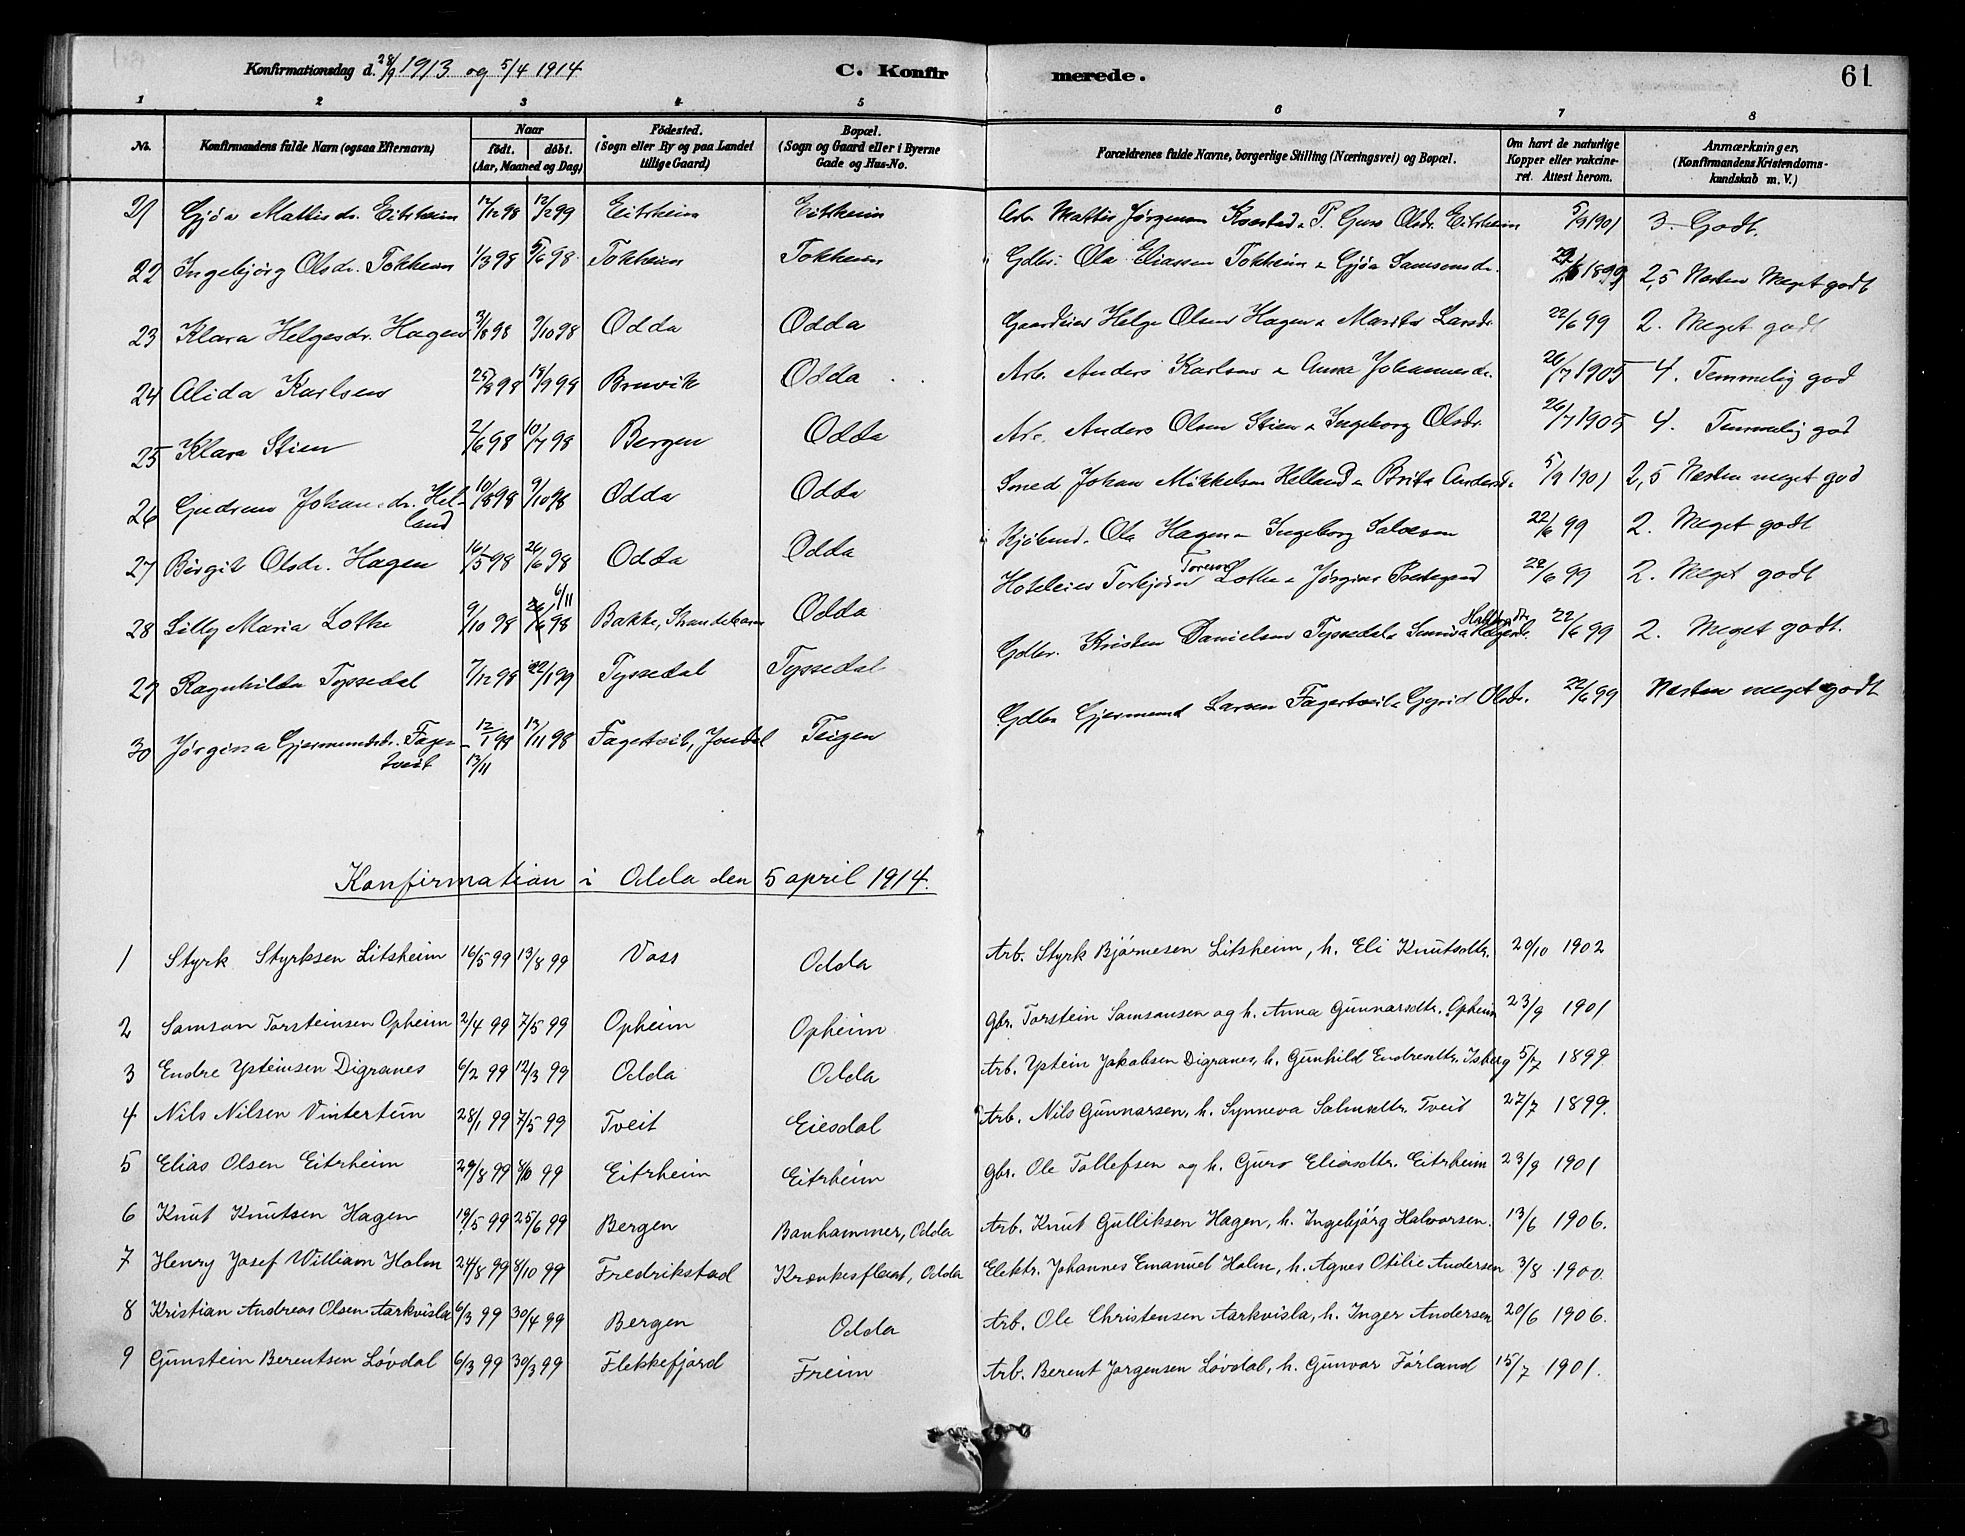 Konfirmationsdag d. 28/9 1913 og 5/4 1914 C. Konfirmerede. 61
1 2 3 4 5 6 7 8
No. Konfirmandens fulde Navn (ogsaa Efternavn.) Naar födt. döbt. (Aar, Maaned og Dag) Födested. (Sogn eller By og paa Landet tillige Gaard) Bopæl. (Sogn og Gaard eller i Byerne Gade og Hus-No. Forældrenes fulde Navne, borgerlige Stilling (Næringsvei) og Bopæl. Om havt de naturlige Kopper eller vakcineret. Attest herom. Anmærkninger. (Konfirmandens Kristendomskundskab m. V.)
21 Gjøa Mattisdr. Eitrheim 12/12 98 12/2 99 Eitrheim Eitrheim Arb. Mattis Jørgensen Kvestad & P. Guro Olsdr. Eitrheim 5/9 1901 3. Godt.
22 Ingebjörg Olsdr. Tokheim 1/3 98 5/6 98 Tokheim Tokheim Gdbr. Ola Eliassen Tokheim & Gjøa Samsonsdr. 1899 2,5 Nesten Meget godt
23 Klara Helgesdr. Hagen 3/8 98 9/10 98 Odda Odda Gaardeier Helge Olsen Hagen & Marita Larsdr. 22/6 99 2. Meget godt
24 Alida Karlsen 25/8 98 18/9 98 Bruvik Odda Arb. Anders Karlsen & Anna Johannesdr. 26/7 1905 4. Temmelig god
25 Klara Stien 2/6 98 10/7 98 Bergen Odda Arb. Anders Olsen Stien & Ingeborg Olsdr. 26/7 1905 4. Temmelig god
26 Gudrun Johansdr. Helland 10/8 98 9/10 98 Odda Odda Smed Johan Mikkelsen Helland & Brita Andersd. 5/9 1901 2,5 Nesten meget god
27 Birgit Olsdr. Hagen 16/5 98 26/6 98 Odda Odda Kjøbmd. Ola Hagen & Ingeborg Salvesen 22/6 99 2. Meget godt
28 Lilly Maria Lothe 9/10 98 6/11 98 Bakke, Strandebarm Odda Hoteleier Torbjörn Toresen Lothe & Jørgine 22/6 99 2. Meget godt
29 Ragnhilda Tyssedal 7/12 98 22/1 99 Tyssedal Tyssedal Gdbr. Kristen Danielsen Tyssedal & Sunniva 22/6 99 2. Meget godt.
30 Jørgina Gjermundsdr. Fagertveit 13/11 12/1 98 13/11 98 Fagertveit, Jondal Teigen Gdbr. Gjermund Larsen Fagertveit & Gyrid Olsdr. 22/6 99 Nesten meget godt
Konfirmation i Odda den 5 april 1914.
1 Styrk Styrksen Litsheim 16/5 99 13/8 99 Voss Odda Arb. Styrk Bjórnesen Litsheim, h. Eli Knutsdtr. 20/10 1902
2 Samson Torsteinsen Opheim 2/4 99 7/5 99 Opheim Opheim Gbr. Torstein Samsonsen og h. Anna Gunnarsdtr. Opheim 23/9 1901
3 Endre Ysteinsen Digranes 6/2 99 12/3 99 Odda Odda Arb. Ystein Jakobsen Digranes, h. Gunhild Endresdtr. Isberg 5/7 1899.
4 Nils Nilsen Vintertun 28/1 99 7/5 99 Tveit Eiesdal Arb. Nils Gunnarsen, h. Synneva Salmsdtr. Tveit 27/7 1899.
5 Elias Olsen Eitrheim 29/8 99 8/10 99 Eitrheim Eitrheim Gbr. Ole Tollefsen og h. Guro Eliasdtr. Eitrheim 23/9 1901
6 Knut Knutsen Hagen 19/5 99 25/6 99 Bergen Banhammer, Odda Arb. Knut Gulliksen Hagen, h. Ingebjörg Halvorsen. 13/6 1906.
7 Henry Josef William Holm 24/8 99 8/10 99 Fredrikstad Krænkesfleat, Odda Elektr. Johannes Emanuel Holm, h. Agnes Otilie Andersen 3/8 1900.
8 Kristian Andreas Olsen Aarkvisla 6/3 99 30/4 99 Bergen Odda Arb. Ole Christensen Aarkvisla, h. Inger Andersen 20/6 1906.
9 Gunstein Berentsen Lóvdal 6/3 99 30/3 99 Flekkefjord Freim Arb. Berent Jorgensen Lóvdal, h. Gunvor Fórland 15/7 1901.